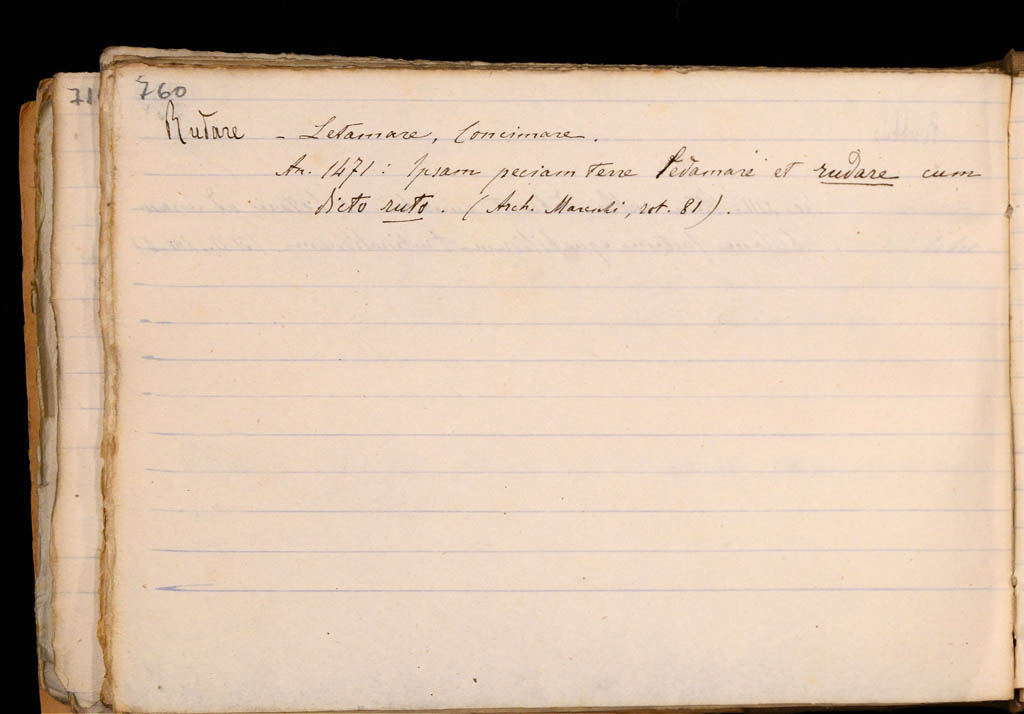 71
760
Rudare - Letamare, Concimare.
An. 1471: Ipsam peciam terre ledamare et rudare cum
dicto ruto. (Arch. , rot. 81).